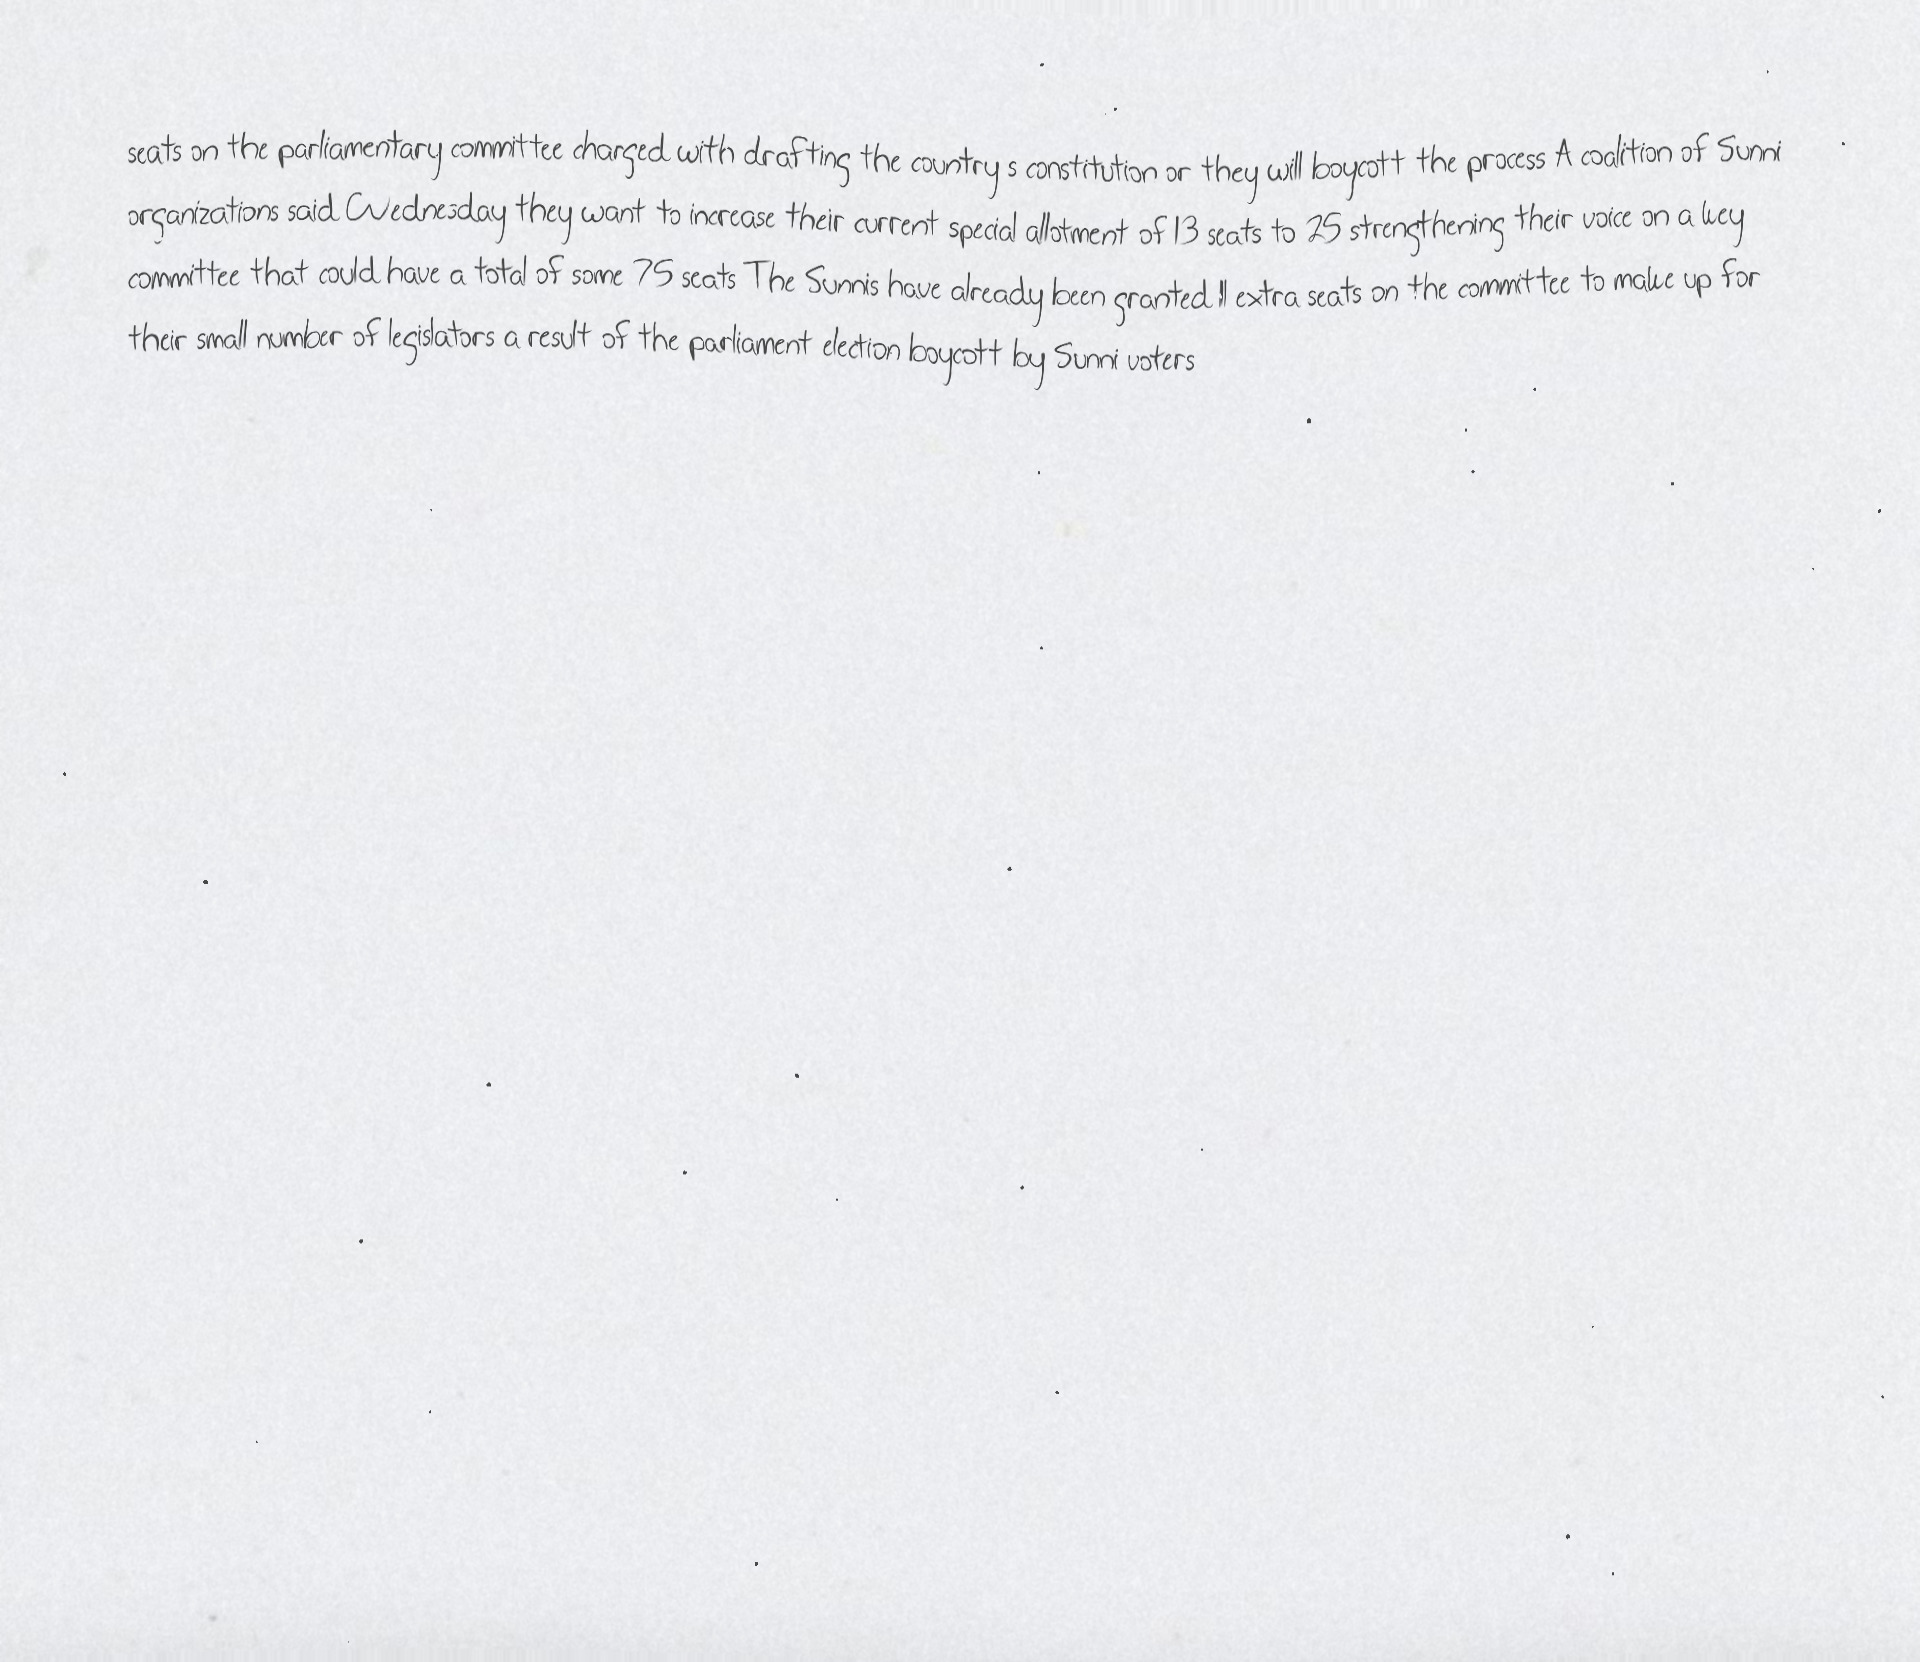 seats on the parliamentary committee charged with drafting the country s constitution or they will boycott the process A coalition of Sunni
organizations said Wednesday they want to increase their current special allotment of 13 seats to 25 strengthening their voice on a key
committee that could have a total of some 75 seats The Sunnis have already been granted 11 extra seats on the committee to make up for
their small number of legislators a result of the parliament election boycott by Sunni voters